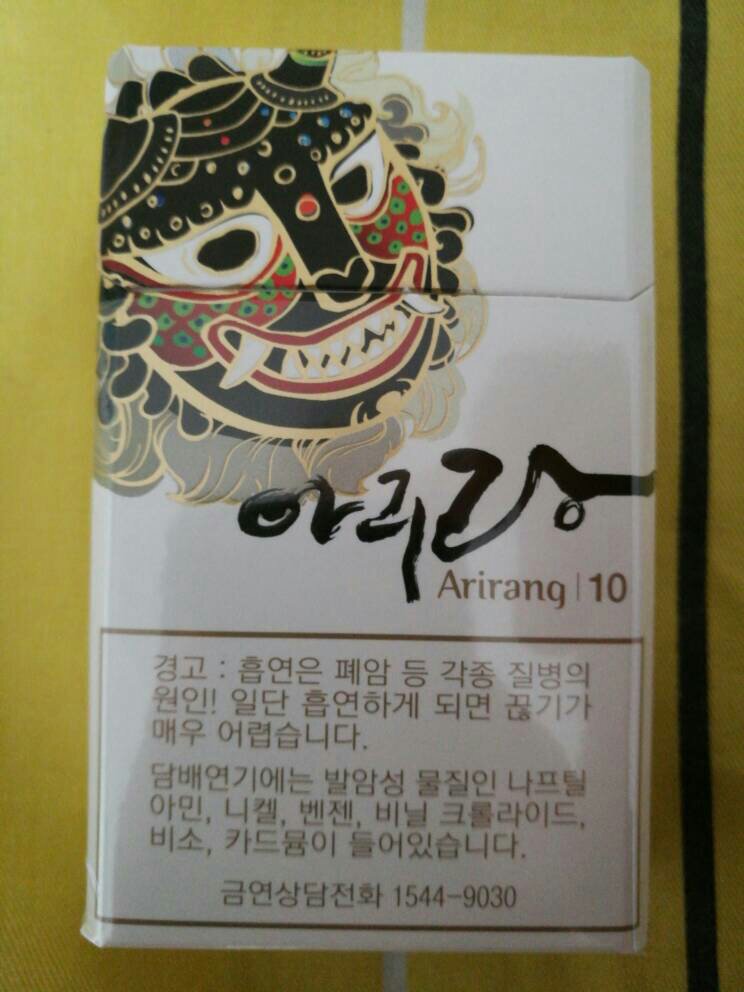 아리랑
Arirang | 10
경고 : 흡연은 폐암 등 각종 질병의
원인! 일단 흡연하게 되면 끊기가
매우 어렵습니다.
담배연기에는 발암성 물질인 나프틸
아민, 니켈, 벤젠, 비닐 크롤라이드,
비소, 카드뮴이 들어있습니다.
금연상담전화 1544-9030